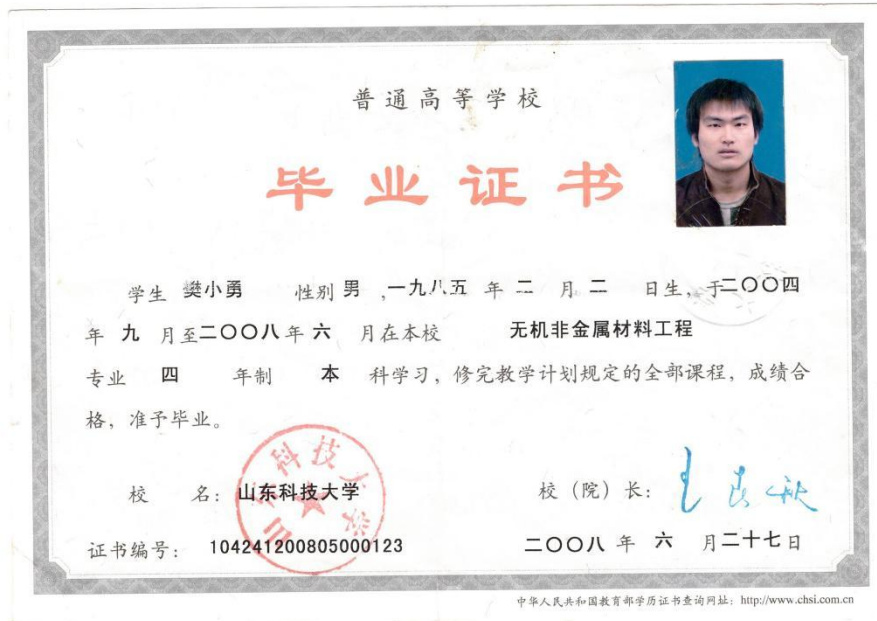 普通高等学校
毕业证书
学生 樊小勇 性别 男 ,一九八五 年 二 月 二 日生，于二〇〇四
年 九 月至二〇〇八年 六 月在本校 无机非金属材料工程
专业 四 年制 本 科学习，修完教学计划规定的全部课程，成绩合
格，准予毕业。
校 名：山东科技大学
校（院）长：
证书编号： 104241200805000123
二〇〇八 年 六 月二十七日
山东科技大学
中华人民共和国教育部学历证书查询网址：http://www.chsi.com.cn